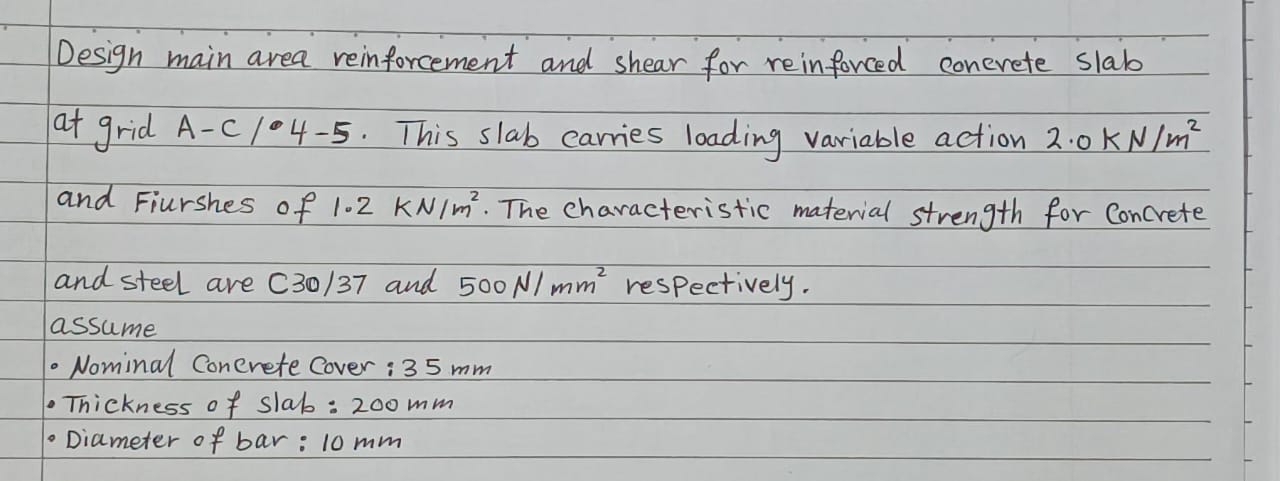 Design main area reinforcement and shear for reinforced concrete slab
at grid A-C/4-5. This slab carries loading variable action 2.0 KN/m²
and Fiurshes of 1.2 KN/m². The characteristic material strength for Concrete
and steel are C30/37 and 500 N/mm² respectively.
assume
• Nominal Concrete Cover : 35 mm
• Thickness of slab : 200 mm
• Diameter of bar : 10 mm